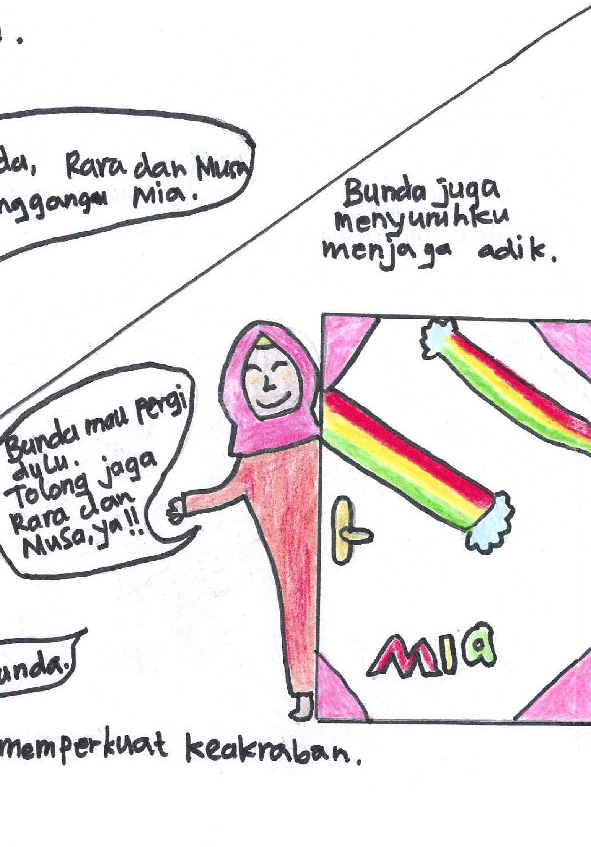 da, Rara dan Musa
nggangu Mia.
Bunda juga
menyuruhku
menjaga adik.
Bunda mau pergi
dulu.
Tolong jaga
Rara dan
Musa, ya!!
MIA
unda.
memperkuat keakraban.